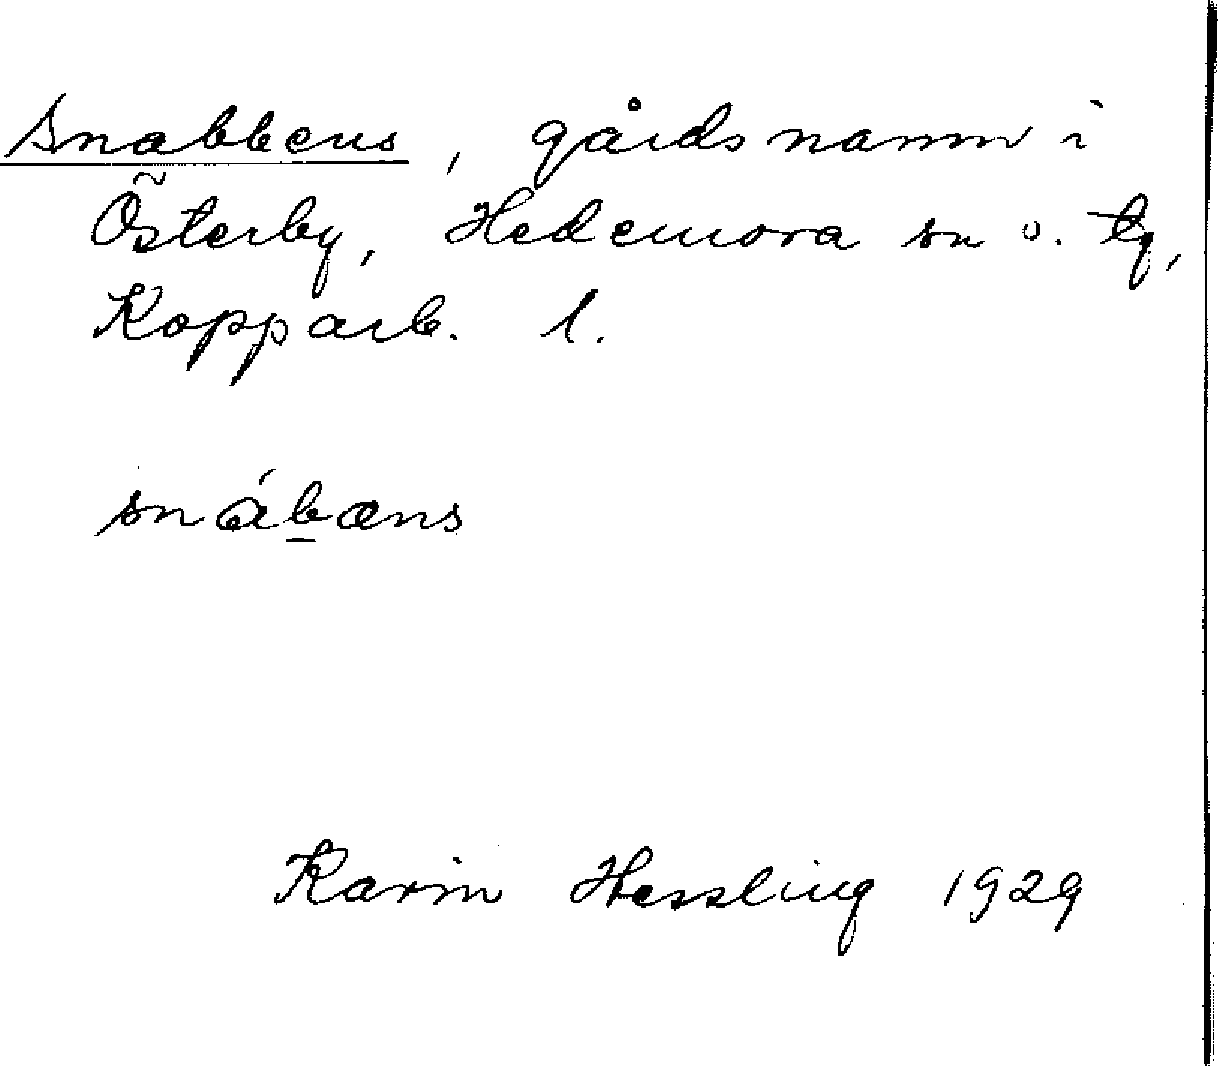 Snabbens, gårdsnamn i
Österby, Hedemora sn o. tg,
Kopparb. l.
snábans
Karin Hessling 1929